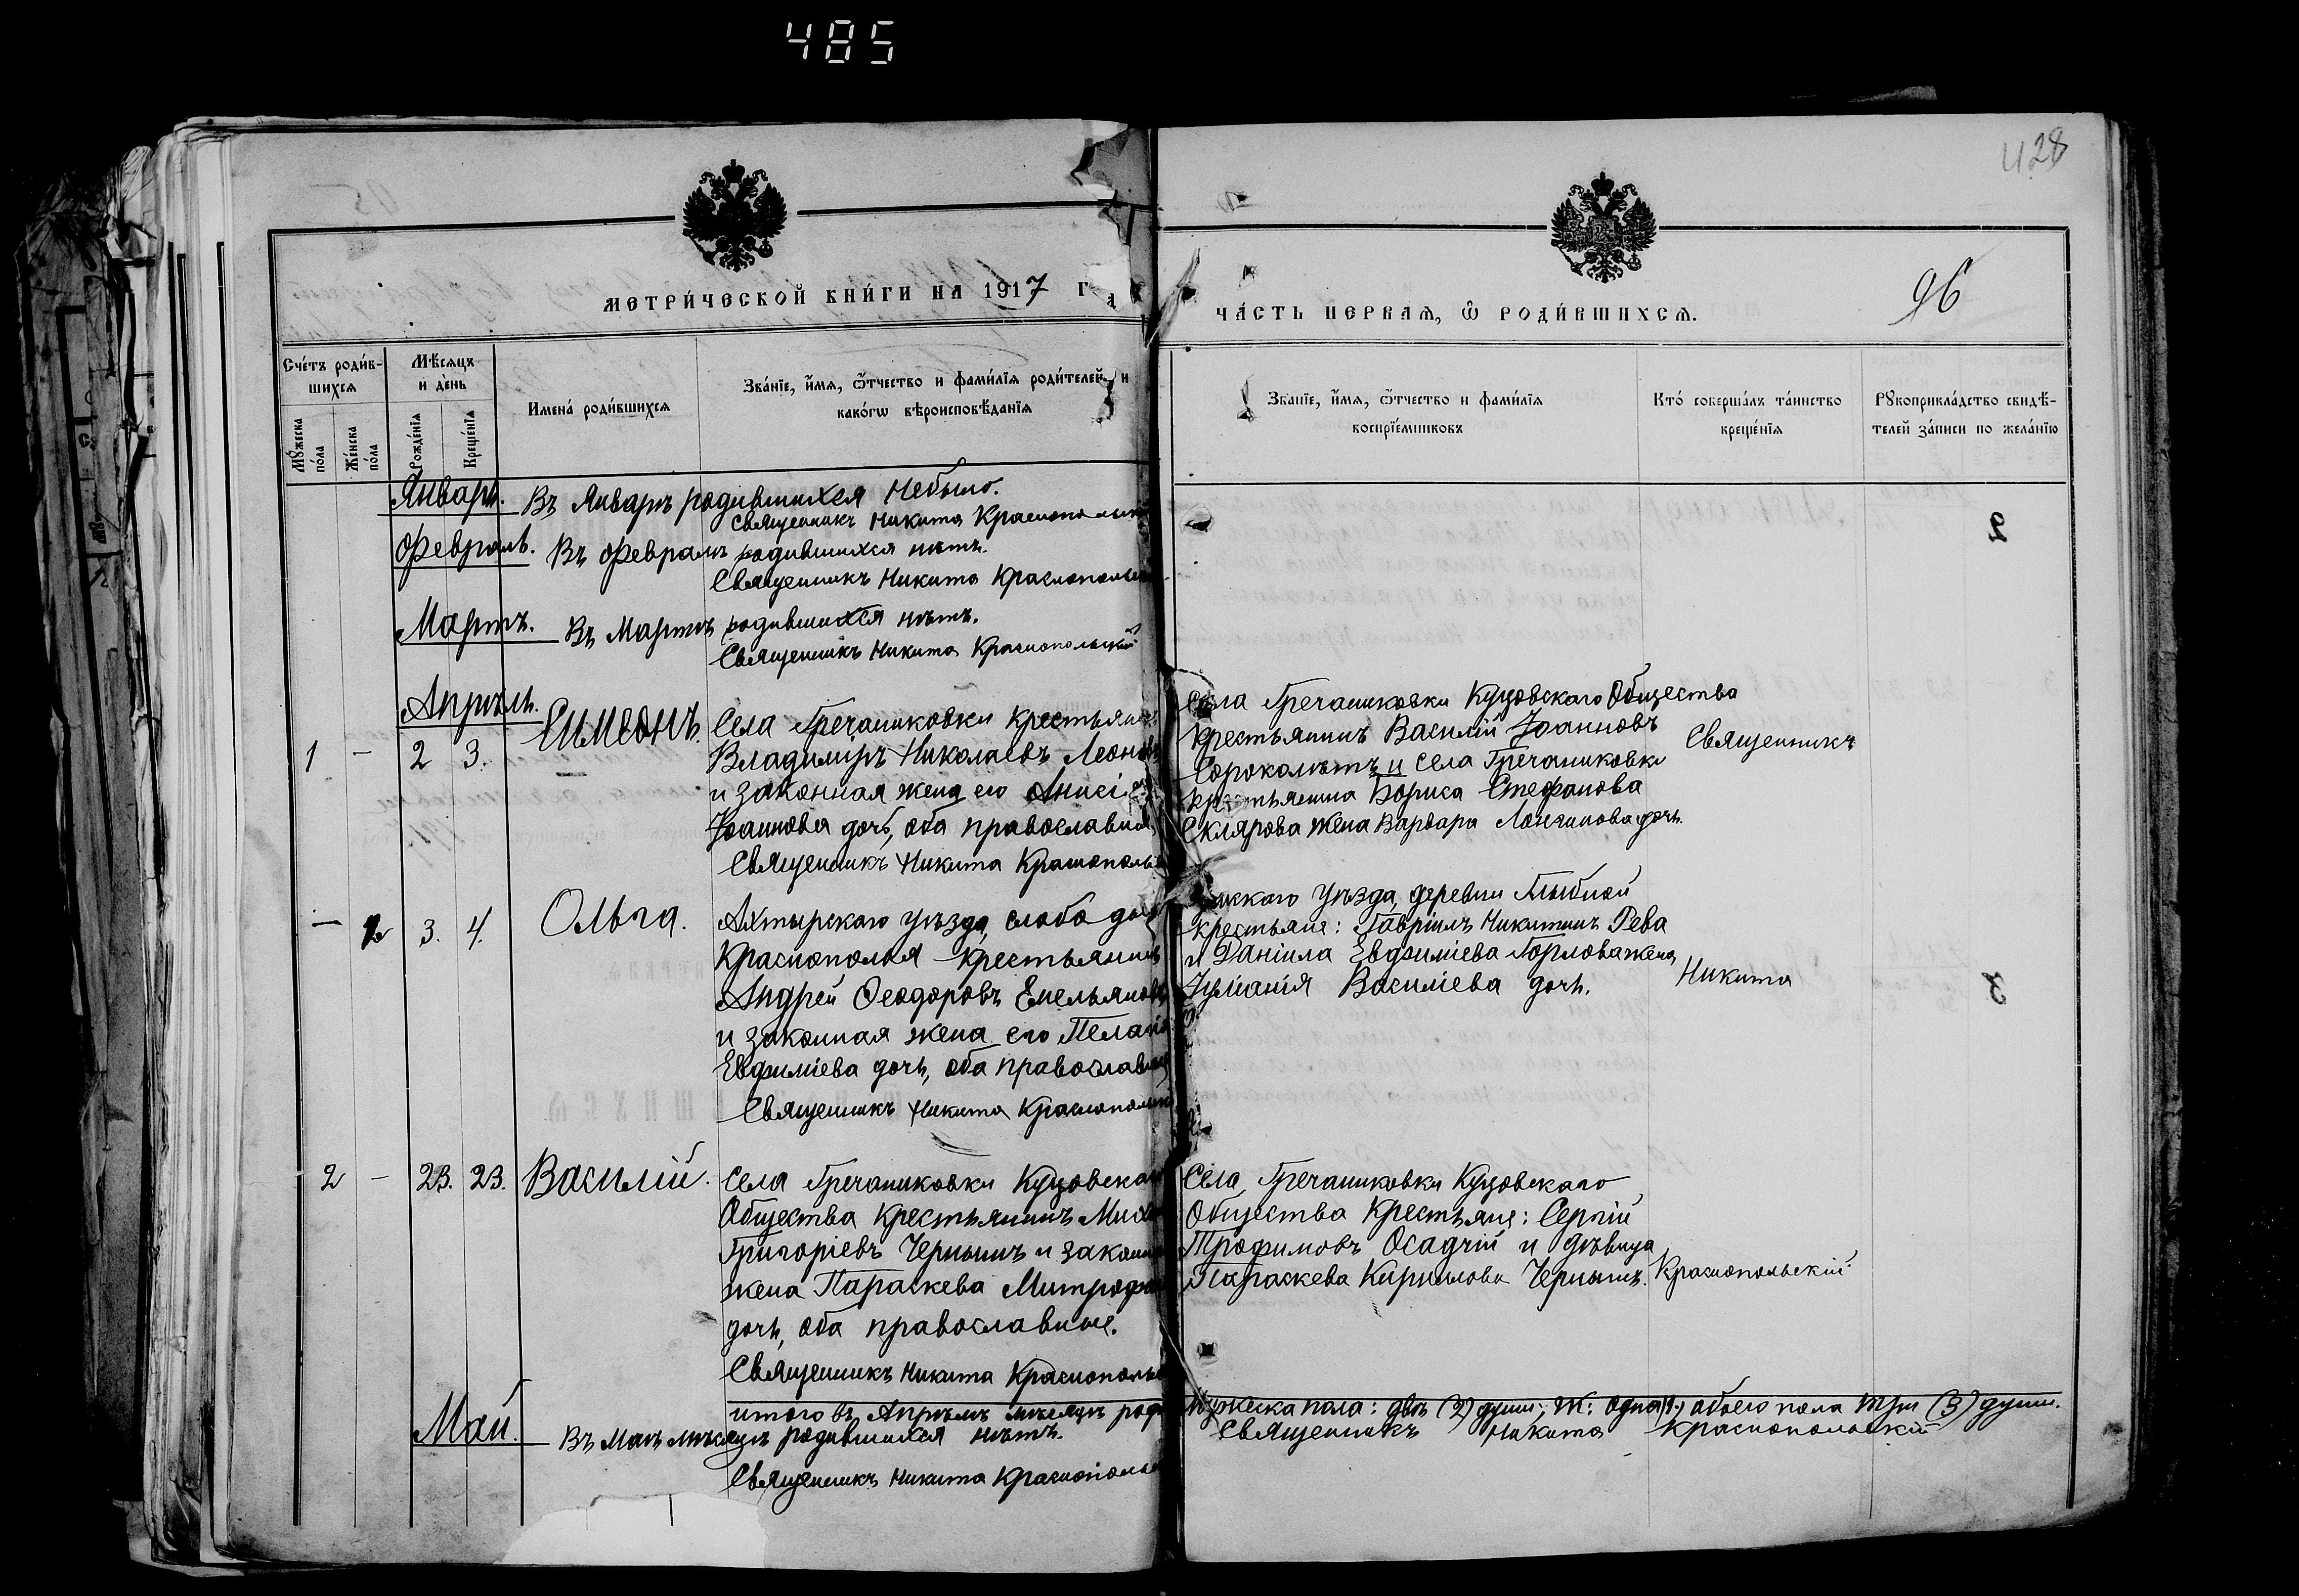 485
428
МЕТРИ́ЧЕСКОЙ КНИ́ГИ НА 1917 Г
ЧА́СТЬ ПЕРВАЯ, Ѡ РОДИ́ВШИХСЯ.
96
Сче́тъ роди́в-
шихся
Мѣ́сяцъ
и де́нь
Имена́ роди́вшихся
Зва́нїе, и́мя, ѻ́тчество и фами́лїя роди́телей и
како́гѡ вѣроисповѣ́данїя
Зва́нїе, и́мя, ѻ́тчество и фами́лїя
воспрїе́мниковъ
Кто́ соверша́лъ та́инство
креще́нїя
Рꙋкоприкла́дство свидѣ́-
телей за́писи по жела́нїю
Мꙋ́жеска
по́ла
Же́нска
по́ла
Рожде́нїя
Креще́нїя
Январь. Въ Январѣ родившихся небыло.
Священникъ Никита Краснополь
Февраль. Въ Февралѣ родившихся нѣтъ.
Священникъ Никита Краснополь
Мартъ. Въ Мартѣ родившихся нѣтъ.
Священникъ Никита Краснопольскій
Апрѣль.
1 - 2 3. Симеонъ.
Села Гречаниковки крестьянинъ
Владимиръ Николаевъ Леонов
и законная жена его Анисі
Іоаннова дочь, оба православн
Священникъ Никита Краснополь
Села Гречаниковки Куцовскаго Общества
крестьянинъ Василій Іоанновъ
Сороколѣтъ и села Гречаниковки
крестьянина Бориса Стефанова
Склярова жена Варвара Лонгинова дочь.
Священникъ
- 3. 4. Ольга.
Ахтырскаго уѣзда, слобо
Краснополья крестьянинъ
Андрей Ѳеодоровъ Емельянов
и законная жена его Пелагі
Евфиміева дочь, оба православн
Священникъ Никита Краснополь
уѣзда, деревни
крестьяне: Гавріилъ Никитинъ Рева
и Даніила Евфиміева Горлова жена
Василіева дочь.
Никита
2 - 23. 23. Василій.
Села Гречаниковки Куцовска
Общества крестьянинъ Миха
Григоріевъ Чернышъ и законн
жена Параскева Митрофан
дочь, оба православные.
Священникъ Никита Краснополь
Села Гречаниковки Куцовскаго
Общества крестьяне: Сергій
Трофимовъ Осадчій и дѣвица
Параскева Кириллова Чернышъ.
Краснопольскій
итого въ Апрѣлѣ мѣсяцѣ род
мужеска пола: двѣ (2) души; Ж: одна (1) обоего пола три (3) души.
Священникъ Никита Краснопольскій
Май. Въ Маѣ мѣсяцѣ родившихся нѣтъ.
Священникъ Никита Краснополь